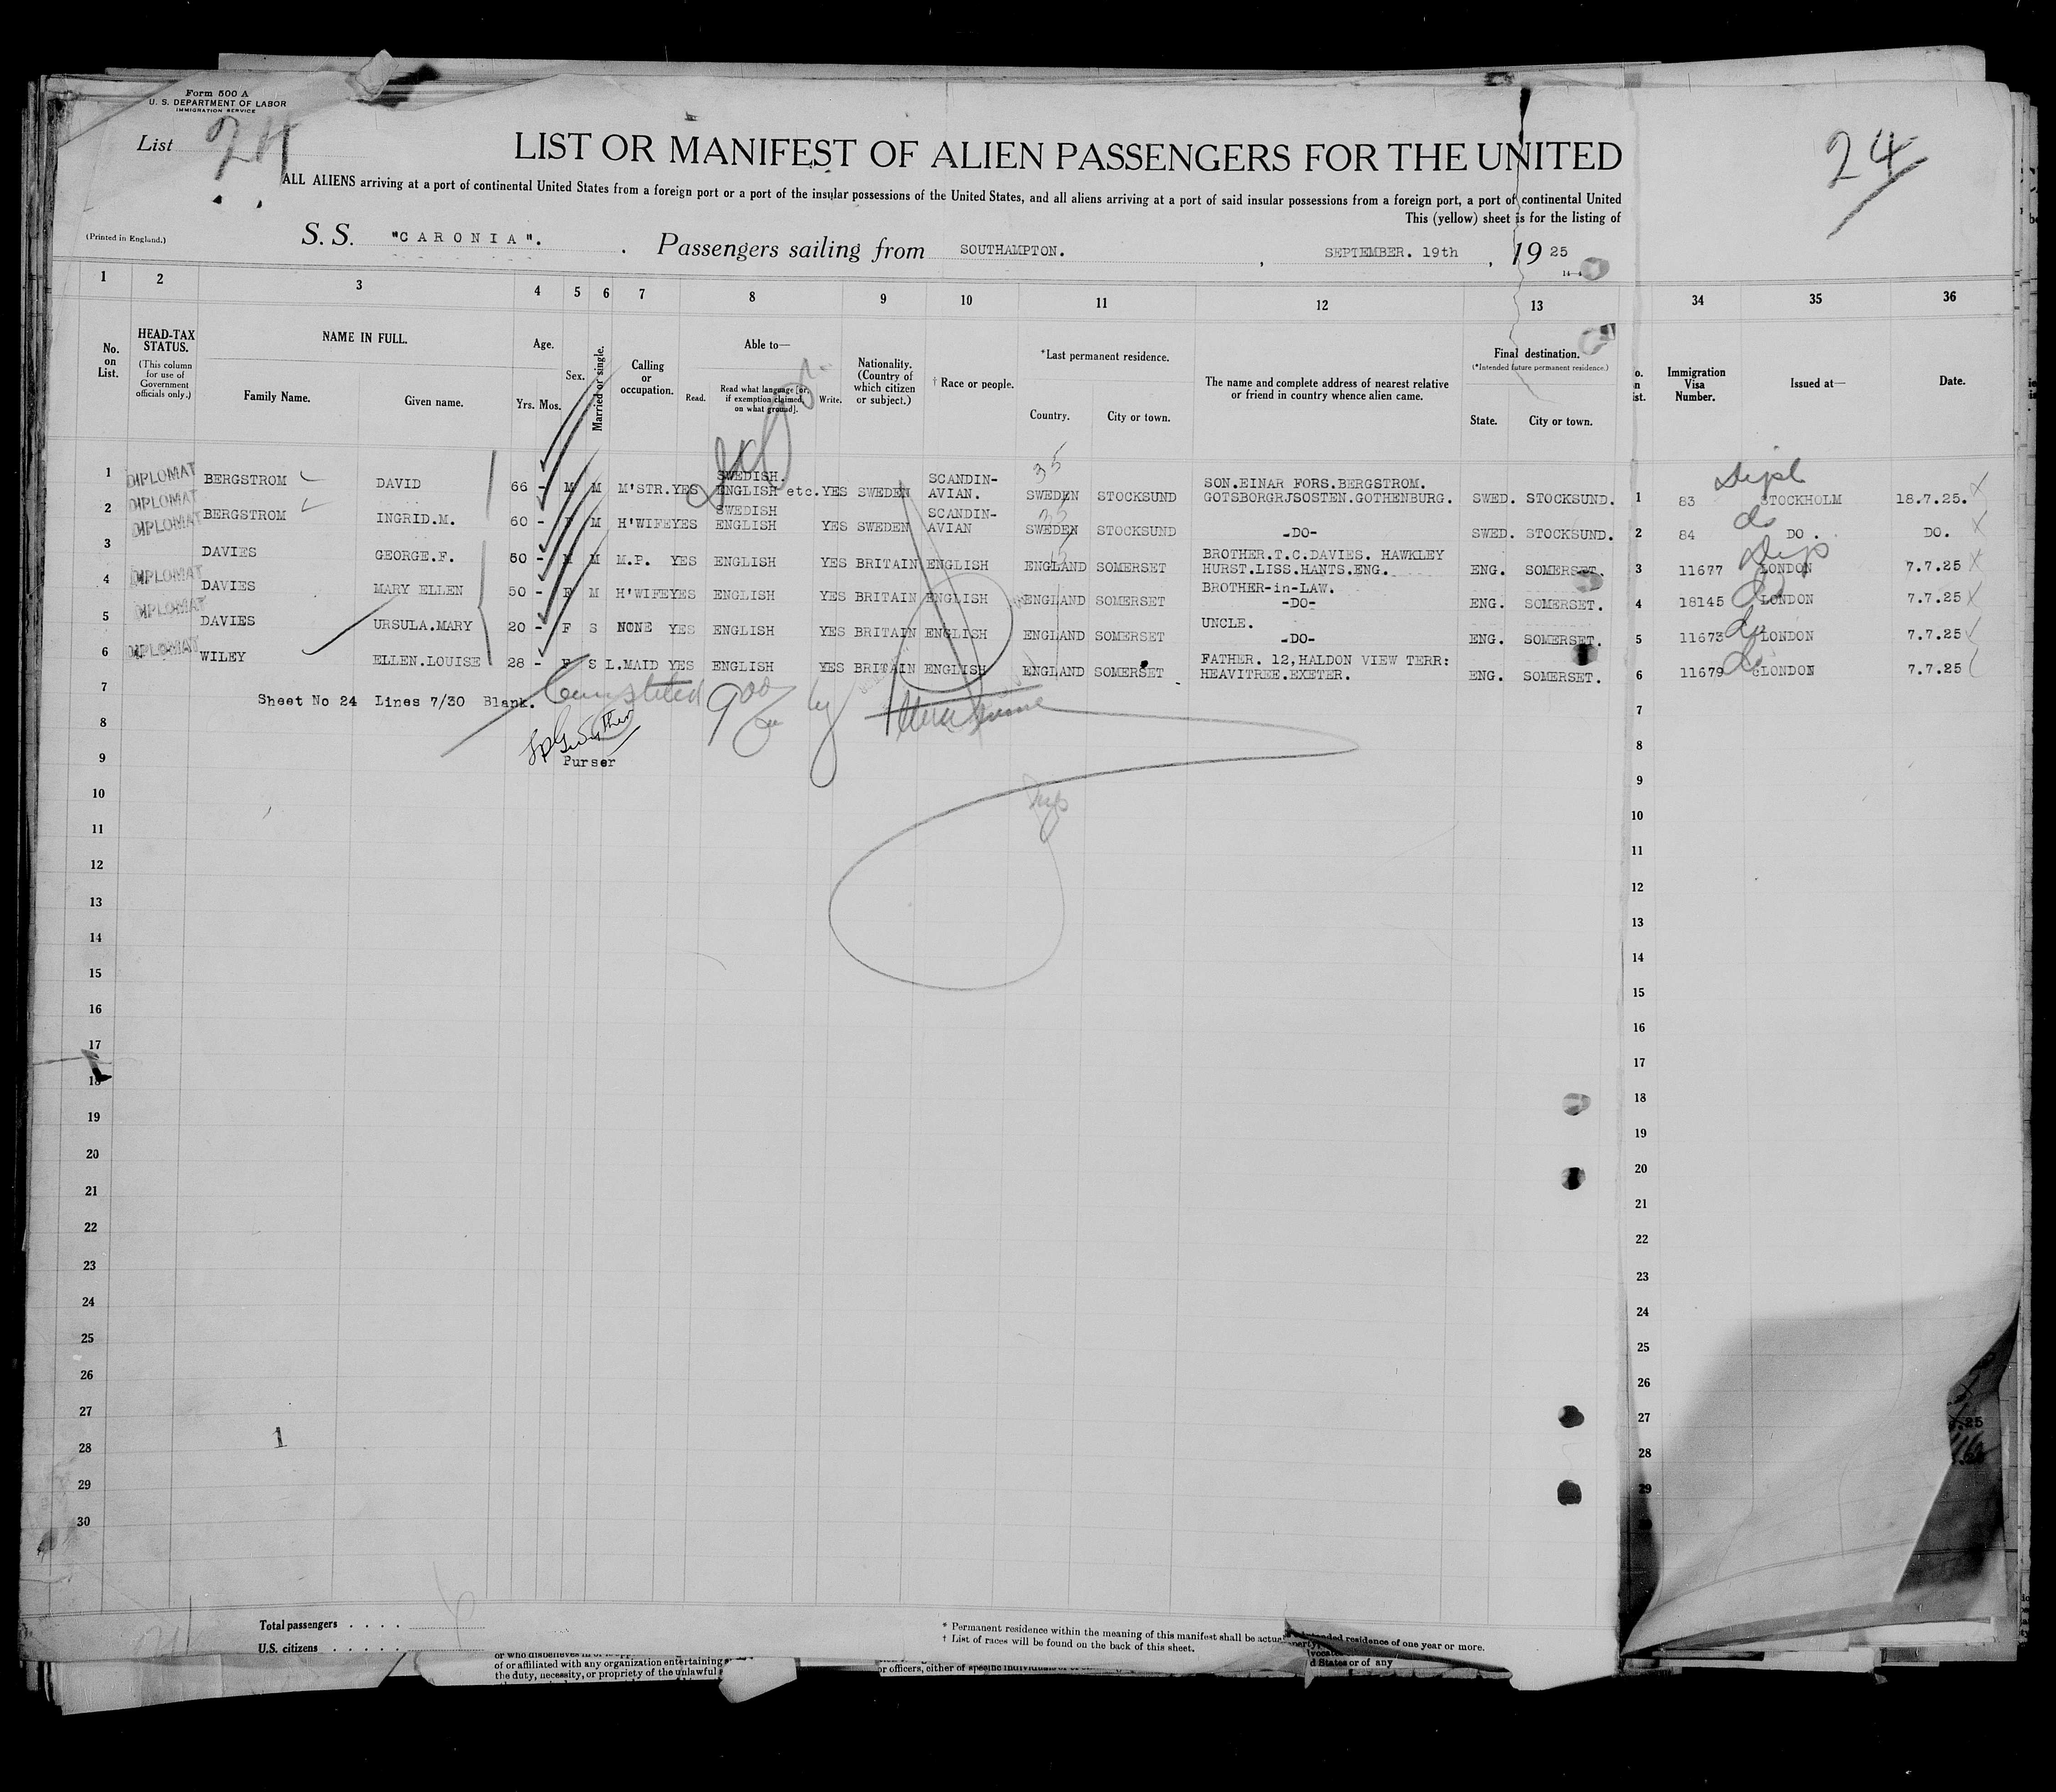 Form 500 A
U. S. DEPARTMENT OF LABOR
IMMIGRATION SERVICE
List 24
LIST OR MANIFEST OF ALIEN PASSENGERS FOR THE UNITED
24
ALL ALIENS arriving at a port of continental United States from a foreign port or a port of the insular possessions of the United States, and all aliens arriving at a port of said insular possessions from a foreign port, a port of continental United
This (yellow) sheet is for the listing of
(Printed in England.)
S. S. "CARONIA". Passengers sailing from SOUTHAMPTON. , SEPTEMBER. 19th , 1925
1 2 3 4 5 6 7 8 9 10 11 12 13 34 35 36
No. on List.
HEAD-TAX STATUS.
(This column for use of Government officials only.)
NAME IN FULL.
Family Name. Given name.
Age.
Yrs. Mos.
Sex.
Married or single.
Calling or occupation.
Able to—
Read. Read what language [or, if exemption claimed, on what ground]. Write.
Nationality. (Country of which citizen or subject.)
† Race or people.
*Last permanent residence.
Country. City or town.
The name and complete address of nearest relative or friend in country whence alien came.
Final destination.
(*Intended future permanent residence.)
State. City or town.
Immigration Visa Number.
Issued at—
Date.
1 DIPLOMAT BERGSTROM DAVID 66 - M M M'STR. YES SWEDISH. ENGLISH etc. YES SWEDEN SCANDIN-AVIAN. 35 SWEDEN STOCKSUND SON.EINAR FORS.BERGSTROM. GOTSBORGRJSOSTEN.GOTHENBURG. SWED. STOCKSUND. 1 83 Dipl STOCKHOLM 18.7.25.
2 DIPLOMAT BERGSTROM INGRID.M. 60 - F M H'WIFE YES SWEDISH ENGLISH YES SWEDEN SCANDIN-AVIAN SWEDEN STOCKSUND -DO- SWED. STOCKSUND. 2 84 do DO. DO.
3 DIPLOMAT DAVIES GEORGE.F. 50 - M M M.P. YES ENGLISH YES BRITAIN ENGLISH ENGLAND SOMERSET BROTHER.T.C.DAVIES. HAWKLEY HURST.LISS.HANTS.ENG. ENG. SOMERSET. 3 11677 LONDON 7.7.25
4 DIPLOMAT DAVIES MARY ELLEN 50 - F M H'WIFE YES ENGLISH YES BRITAIN ENGLISH ENGLAND SOMERSET BROTHER-in-LAW. -DO- ENG. SOMERSET. 4 18145 LONDON 7.7.25
5 DIPLOMAT DAVIES URSULA.MARY 20 - F S NONE YES ENGLISH YES BRITAIN ENGLISH ENGLAND SOMERSET UNCLE. -DO- ENG. SOMERSET. 5 11673 do LONDON 7.7.25
6 DIPLOMAT WILEY ELLEN.LOUISE 28 - F S L.MAID YES ENGLISH YES BRITAIN ENGLISH ENGLAND SOMERSET FATHER. 12,HALDON VIEW TERR: HEAVITREE.EXETER. ENG. SOMERSET. 6 11679 do LONDON 7.7.25
7 Sheet No 24 Lines 7/30 Blank. Completed by 7
8 8
Purser
9 9
10 10
11 11
12 12
13 13
14 14
15 15
16 16
17 17
18 18
19 19
20 20
21 21
22 22
23 23
24 24
25 25
26 26
27 27
28 1 28
29 29
30
Total passengers . . . .
U.S. citizens . . . . .
* Permanent residence within the meaning of this manifest shall be actual intended residence of one year or more.
† List of races will be found on the back of this sheet.
of or affiliated with any organization entertaining
the duty, necessity, or propriety of the unlawful
or officers, either of specific individuals
d States or of any